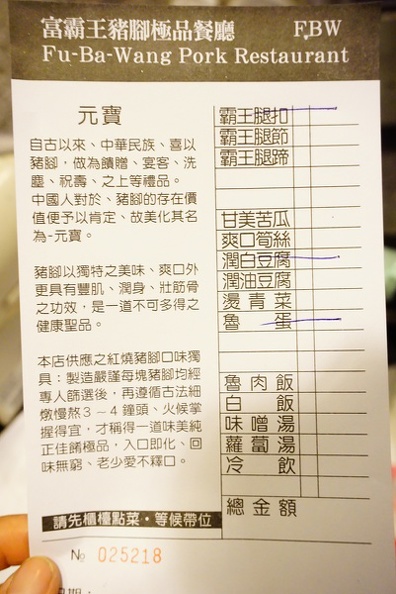 富霸王豬腳極品餐廳 FBW
Fu-Ba-Wang Pork Restaurant
元寶
自古以來、中華民族、喜以
豬腳，做為饋贈、宴客、洗
塵、祝壽、之上等禮品。
中國人對於、豬腳的存在價
值便予以肯定、故美化其名
為-元寶。
豬腳以獨特之美味、爽口外
更具有豐肌、潤身、壯筋骨
之功效，是一道不可多得之
健康聖品。
本店供應之紅燒豬腳口味獨
具：製造嚴謹每塊豬腳均經
專人篩選後，再遵循古法細
燉慢熬3～4鐘頭、火候掌
握得宜，才稱得一道味美純
正佳餚極品，入口即化、回
味無窮、老少愛不釋口。
霸王腿扣
霸王腿節
霸王腿蹄
甘美苦瓜
爽口筍絲
潤白豆腐
潤油豆腐
燙青菜
魯蛋
魯肉飯
白飯
味噌湯
蘿蔔湯
冷飲
總金額
請先櫃檯點菜・等候帶位
№ 025218